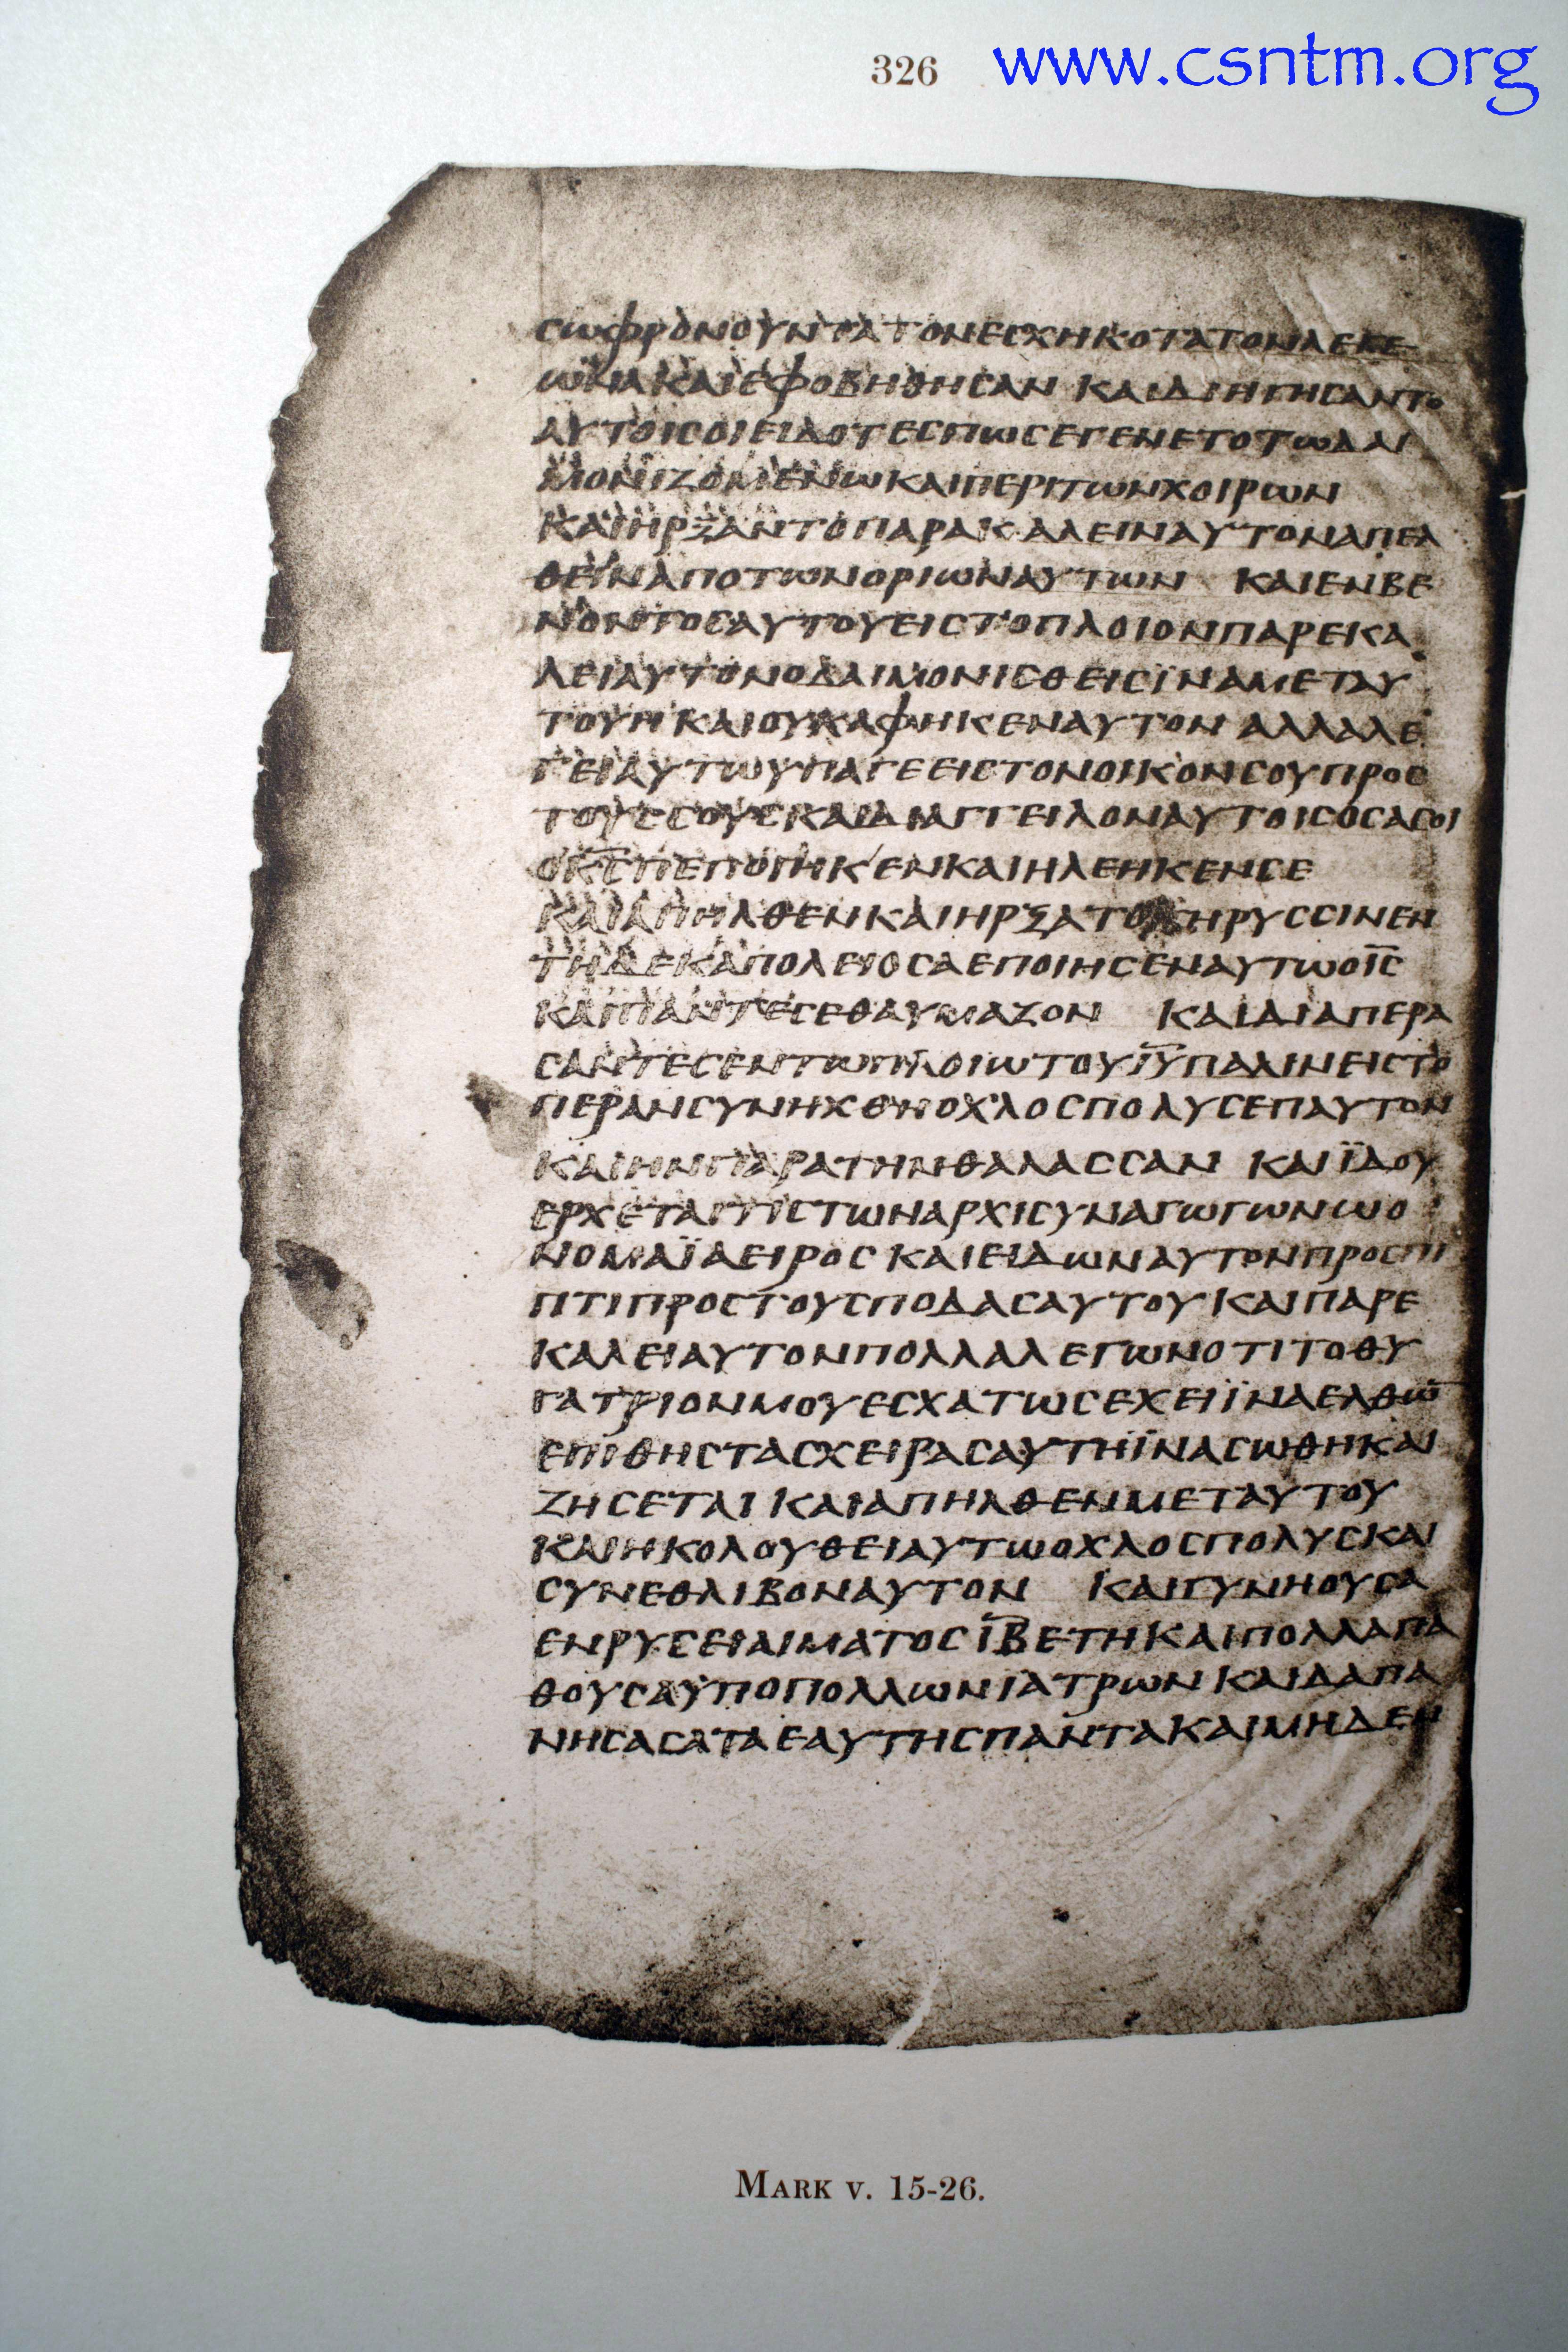 326
www.csntm.org
ϲωφρονουντατονεϲχηκοτατονλεγε
ωνακαιεφοβηθηϲαν καιδιηγηϲαντο
αυτοιϲοιειδοτεϲπωϲεγενετοτωδαι
μονιζομενωκαιπεριτωνχοιρων
καιηρξαντοπαρακαλειναυτοναπελ
θειναποτωνοριωναυτων καιενβε
νοντοϲαυτουειϲτοπλοιονπαρεκα
λειαυτονοδαιμονιϲθειϲϊναμεταυ
τουη καιουκαφηκεναυτον αλλαλε
γειαυτωυπαγεειϲτονοικονϲουπροϲ
τουϲϲουϲκαιδιαγγειλοναυτοιϲοϲαϲοι
οκ̅ϲ̅πεποιηκενκαιηλεηκενϲε
καιαπηλθενκαιηρξατοκηρυϲϲινεν
τηδεκαπολειοϲαεποιηϲεναυτωοι̅ϲ̅
καιπαντεϲεθαυμαζον καιδιαπερα
ϲαντεϲεντωπλοιωτουι̅υ̅παλινειϲτο
περανϲυνηχθηοχλοϲπολυϲεπαυτον
καιηνπαρατηνθαλαϲϲαν καιϊδου
ερχεταιτιϲτωναρχιϲυναγωγωνωο
νομαϊαειροϲ καιειδωναυτονπροϲπι
πτιπροϲτουϲποδαϲαυτουκαιπαρε
καλειαυτονπολλαλεγωνοτιτοθυ
γατριονμουεϲχατωϲεχειϊναελθω̅
επιθηϲταϲχειραϲαυτηϊναϲωθηκαι
ζηϲεται καιαπηλθενμεταυτου
καιηκολουθειαυτωοχλοϲπολυϲκαι
ϲυνεθλιβοναυτον καιγυνηουϲα
ενρυϲειαιματοϲι̅β̅ετηκαιπολλαπα
θουϲαϋποπολλωνϊατρωνκαιδαπα
νηϲαϲαταεαυτηϲπαντακαιμηδεν
Mark v. 15-26.